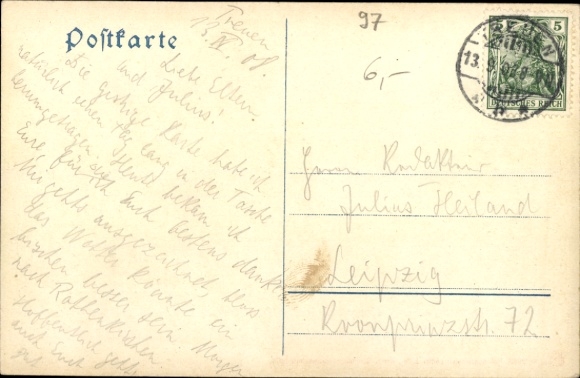 Postkarte
97
6,-
Treuen
13. IV. 08.
Liebe Eltern
und Julius!
Die gestrige Karte habe ich
natürlich einen Tag lang in der Tasche
herumgetragen. Heute bekam ich
Eure für ich Euch bestens danke.
Mir gehts ausgezeichnet, bloss
das Wetter könnte ein
bischen besser sein. Morgen
nach Rothenkirchen.
Hoffentlich gehts
auch Euch
gut
TREUEN
13.
5
DEUTSCHES REICH
Herrn Redakteur
Julius Heiland
Leipzig
Kronprinzstr. 72